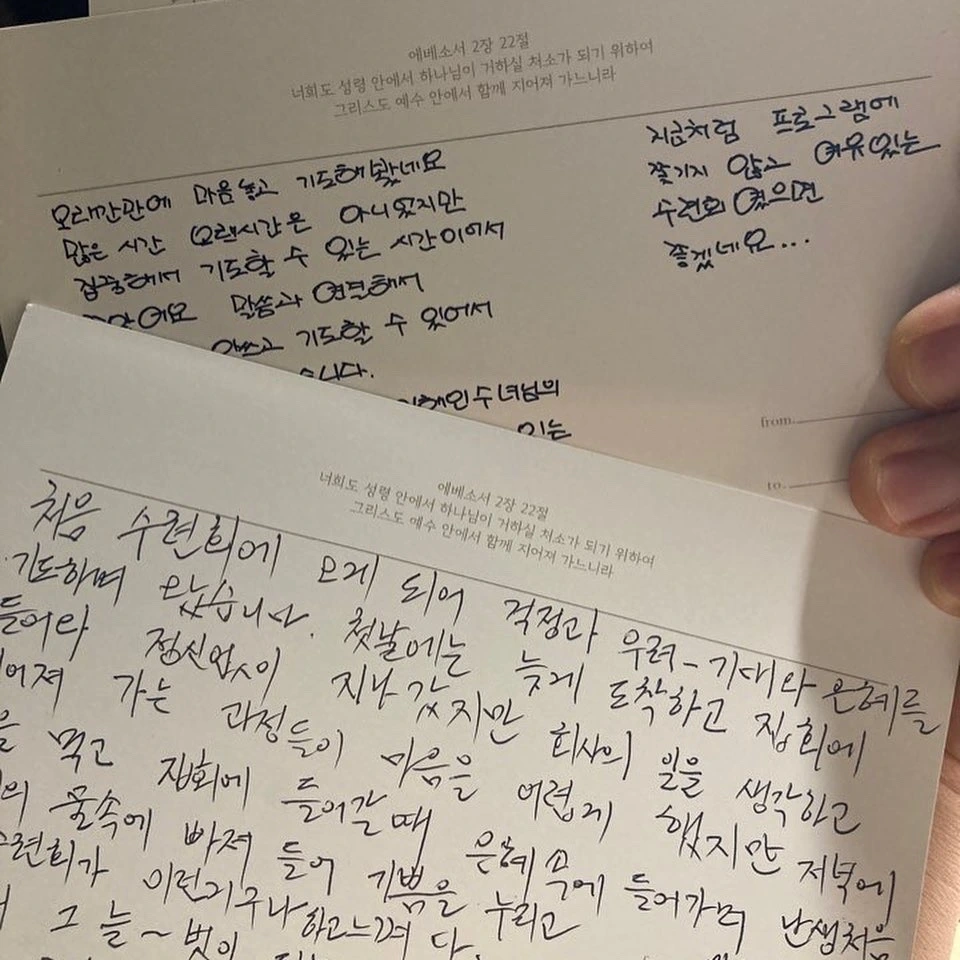 에베소서 2장 22절
너희도 성령 안에서 하나님이 거하실 처소가 되기 위하여
그리스도 예수 안에서 함께 지어져 가느니라
오래간만에 마음놓고 기도해봤네요
많은 시간 오랜시간은 아니었지만
집중해서 기도할 수 있는 시간이어서
말씀과 연결해서
기도할 수 있어서
습니다.
수녀님의
있는
지금처럼 프로그램에
쫓기지 않고 여유있는
수련회 였으면
좋겠네요...
from.
to.
에베소서 2장 22절
너희도 성령 안에서 하나님이 거하실 처소가 되기 위하여
그리스도 예수 안에서 함께 지어져 가느니라
처음 수련회에 오게 되어 걱정과 우려-기대와 은혜를
기도하며 왔습니다. 첫날에는 늦게 도착하고 집회에
들어라 정신없이 지나갔지만 회사의 일을 생각하고
어져 가는 과정들이 마음을 어렵게 했지만 저녁에
을 먹고 집회에 들어갈때 은혜 속에 들어가며 난생처음
의 물속에 빠져 들어 기쁨을 누리고
수련회가 이런거구나 하고느껴 다.
그 늘~ 벗이